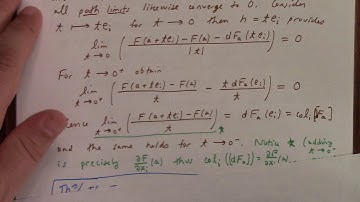 all path limits likewise converge to 0. Consider
t ↦ te_i for t → 0 then h = te_i provides
lim_{t→0} ( F(a + te_i) - F(a) - dF_a(te_i) / |t| ) = 0
For t → 0⁺ obtain
lim_{t→0⁺} ( F(a + te_i) - F(a) / t - t dF_a(e_i) / t ) = 0
Hence lim_{t→0⁺} ( F(a + te_i) - F(a) / t ) * = dF_a(e_i) = col_i [dF_a]
and the same holds for t → 0⁻. Notice * (adding t → 0⁻
is precisely ∂F/∂x_i (a) thus col_i([dF_a]) = ∂F/∂x_i (a).